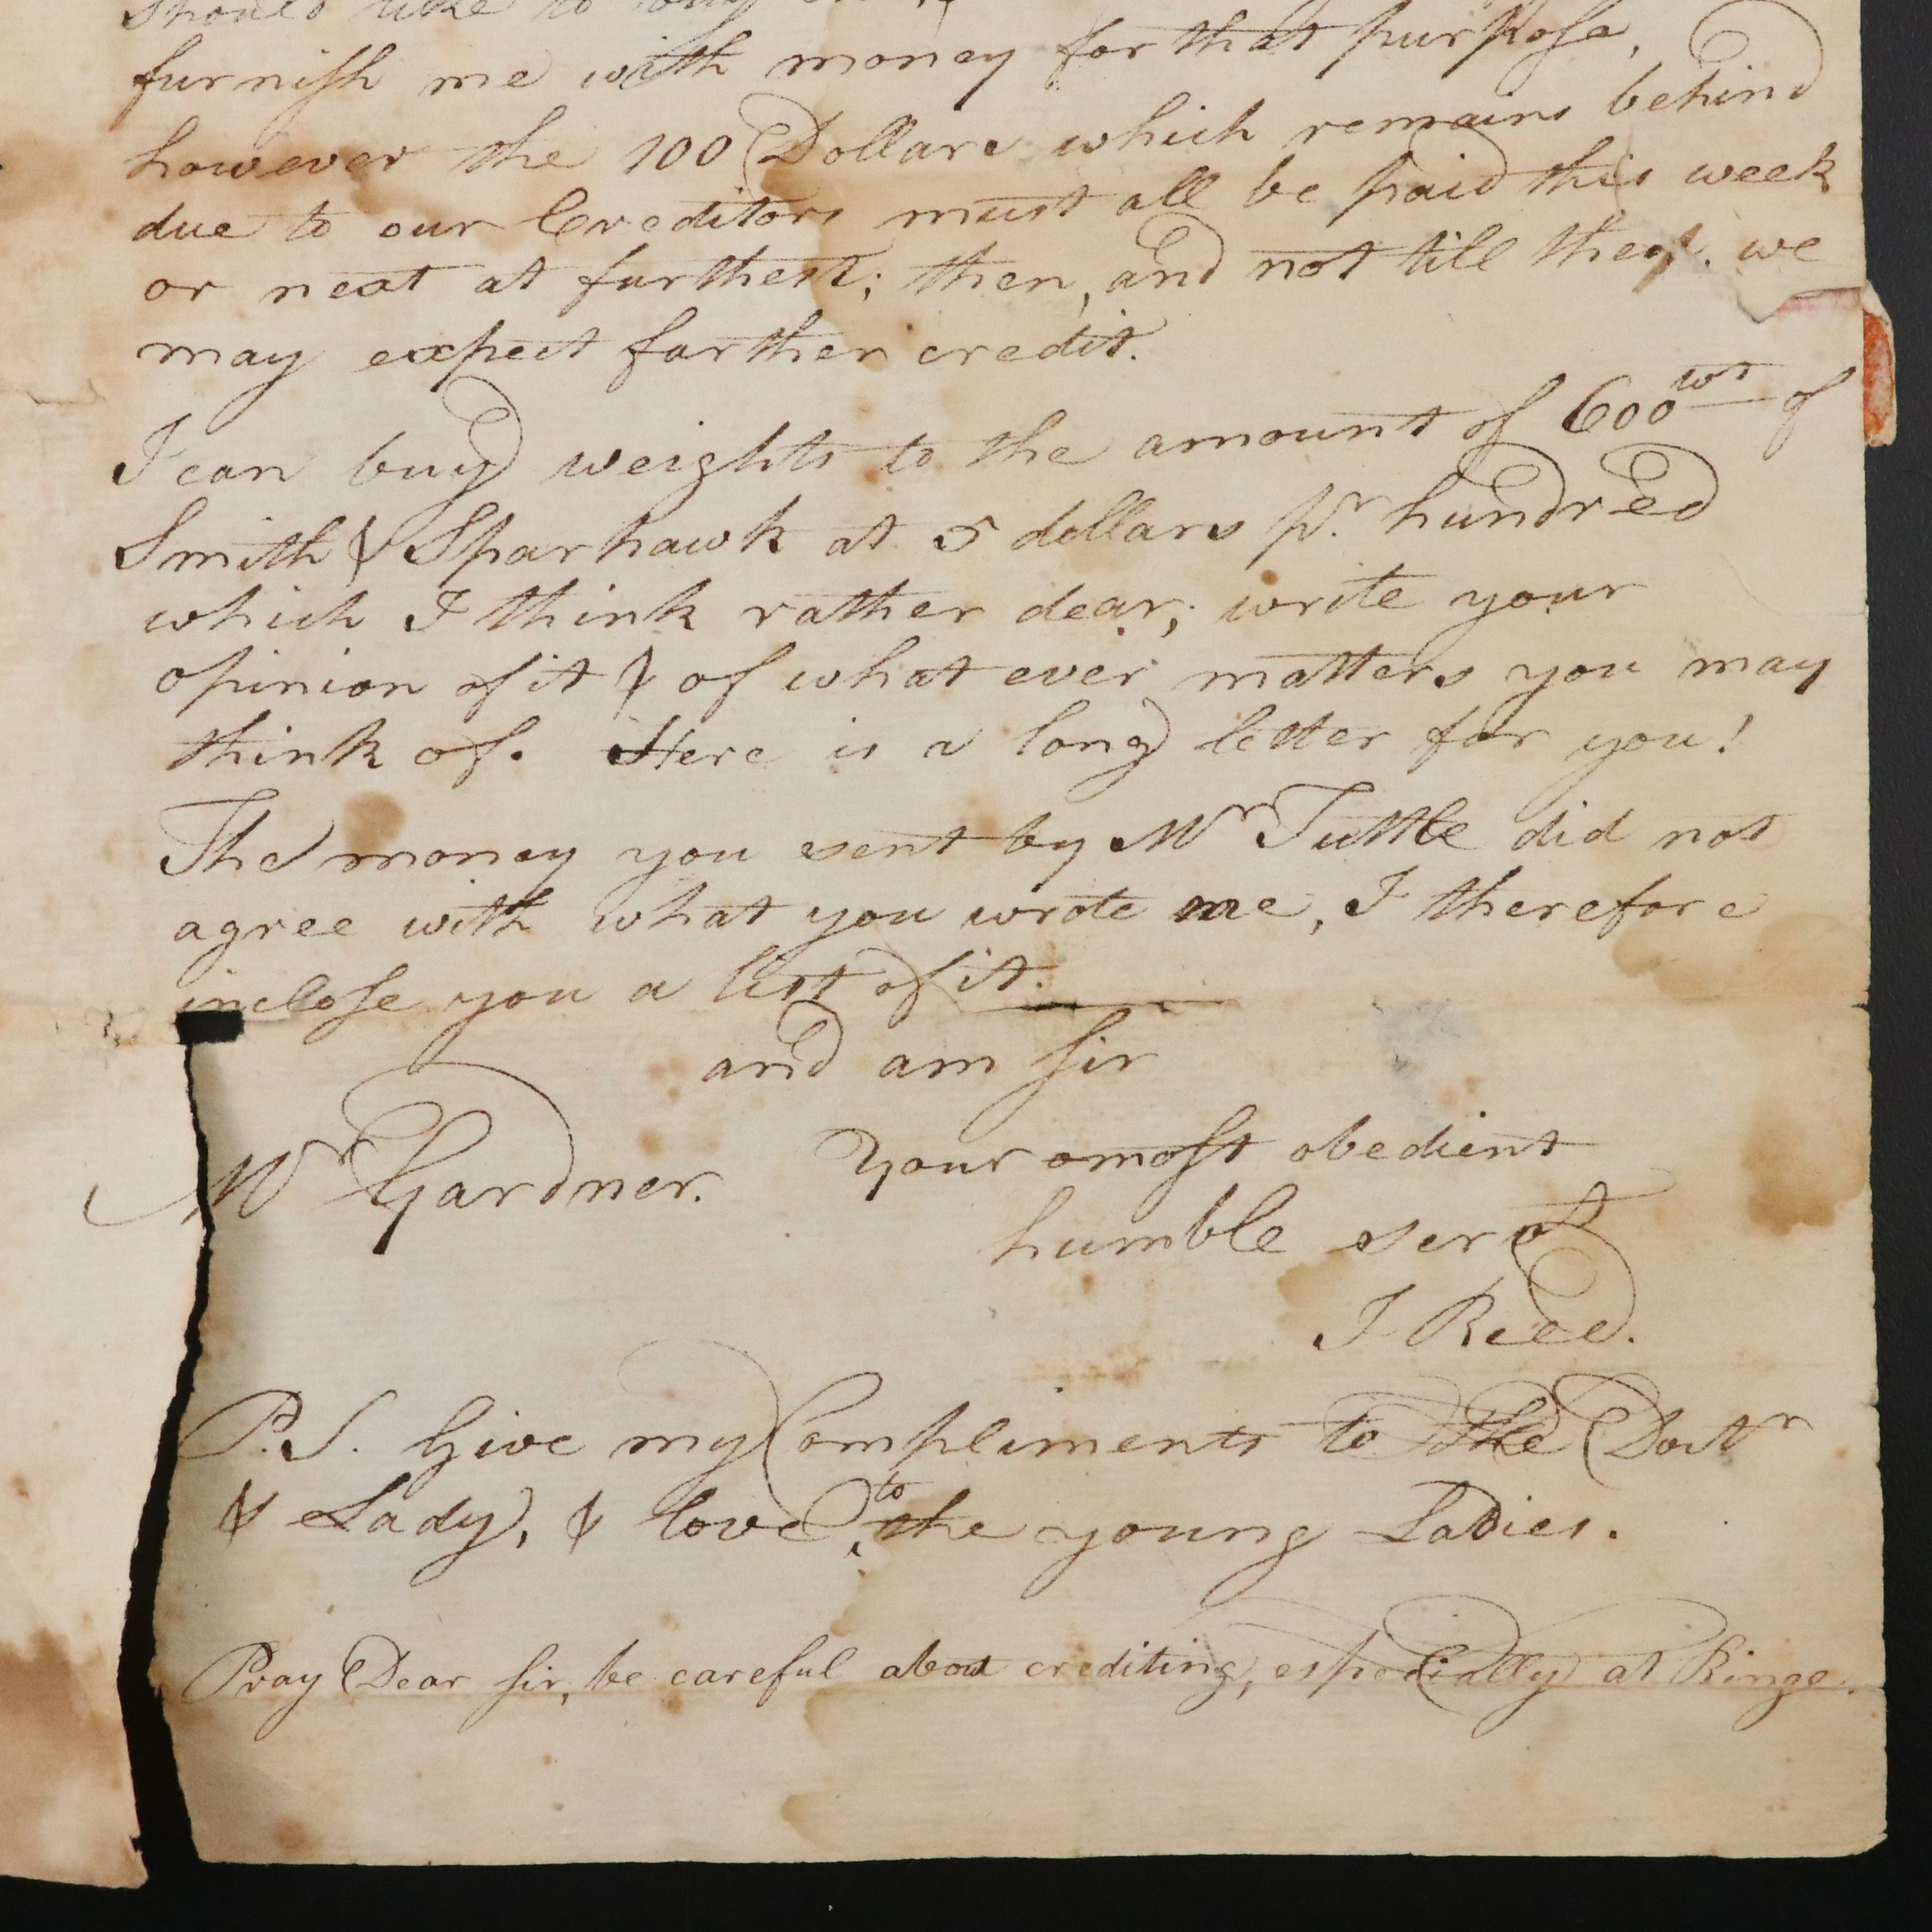 should like to buy
furnish me with money for that purpose,
however the 100 Dollars which remains behind
due to our Creditors must all be paid this week
or next at furthest; then, and not till then, we
may expect farther credit.
I can buy weights to the amount of 600wt of
Smith & Sparhawk at 5 dollars pr. hundred
which I think rather dear; write your
opinion of it & of what ever matters you may
think of. Here is a long letter for you!
The money you sent by Mr Tuttle did not
agree with what you wrote me, I therefore
inclose you a list of it.
and am sir
Mr Gardner. Your most obedient
humble servt
J Reed.
P.S. Give my Compliments to the Doctr
& Lady, & love to the young Ladies.
Pray Dear sir, be careful about crediting, especially at Ringe.